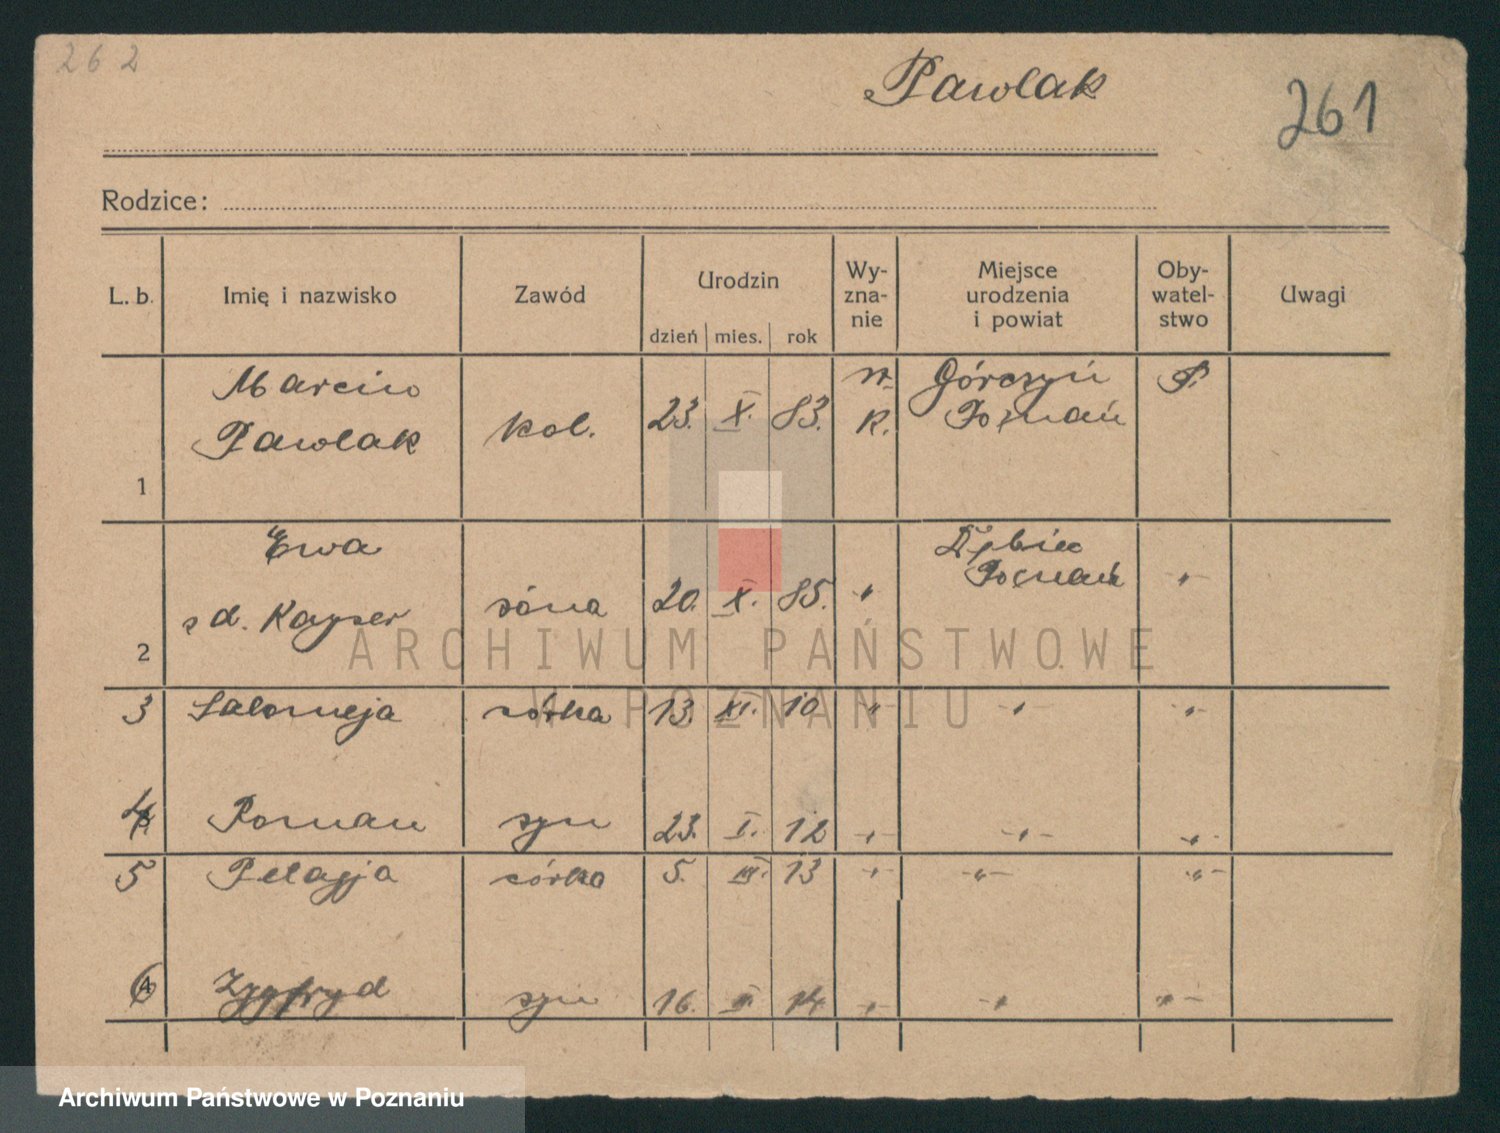 262
Pawlak
261
Rodzice:
L. b. Imię i nazwisko Zawód Urodzin dzień mies. rok Wy-zna-nie Miejsce urodzenia i powiat Oby-watel-stwo Uwagi
1 Marcin Pawlak kol. 23. X. 83. rz. K. Górczyń Poznań P.
2 Ewa z d. Kayser żona 20. X. 85. " Dębiec Poznań "
3 Salomeja córka 13. XI. 10 " " "
4 Roman syn 23. I. 12 " " "
5 Pelagja córka 5. III. 13 " " "
6 Zygfryd syn 16. 14. " " "
ARCHIWUM PAŃSTWOWE
W POZNANIU
Archiwum Państwowe w Poznaniu